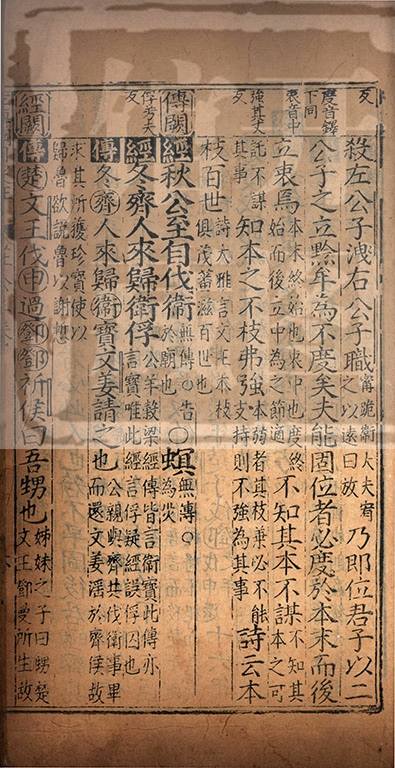 反
殺左公子洩右公子職甯跪衛大夫宥之以遠曰放乃即位君子以二
度音鐸下同
公子之立黔牟為不度矣夫能固位者必度於本末而後
衷音中
立衷焉本末終始也衷中也度終始而後立中為之節適不知其本不謀不知其本之可
強其丈反
託不謀其事知本之不枝弗強本弱者其枝葉必不能支持則不強為其事詩云本
枝百世詩大雅言文王本枝俱茂蕃滋百世也
傳闕
經秋公至自伐衛無傳○告於廟也○螟無傳○為災
俘芳夫反
經冬齊人來歸衛俘公羊穀梁經傳皆言衛寶此傳亦言寶唯此經言俘疑經誤俘囚也
傳冬齊人來歸衛寶文姜請之也公親與齊共伐衛事畢而還文姜淫於齊侯故
求其所獲珍寶使以歸魯欲說魯以謝慙
經闕
傳楚文王伐申過鄧鄧祁侯曰吾甥也姊妹之子曰甥楚文王鄧曼所生故